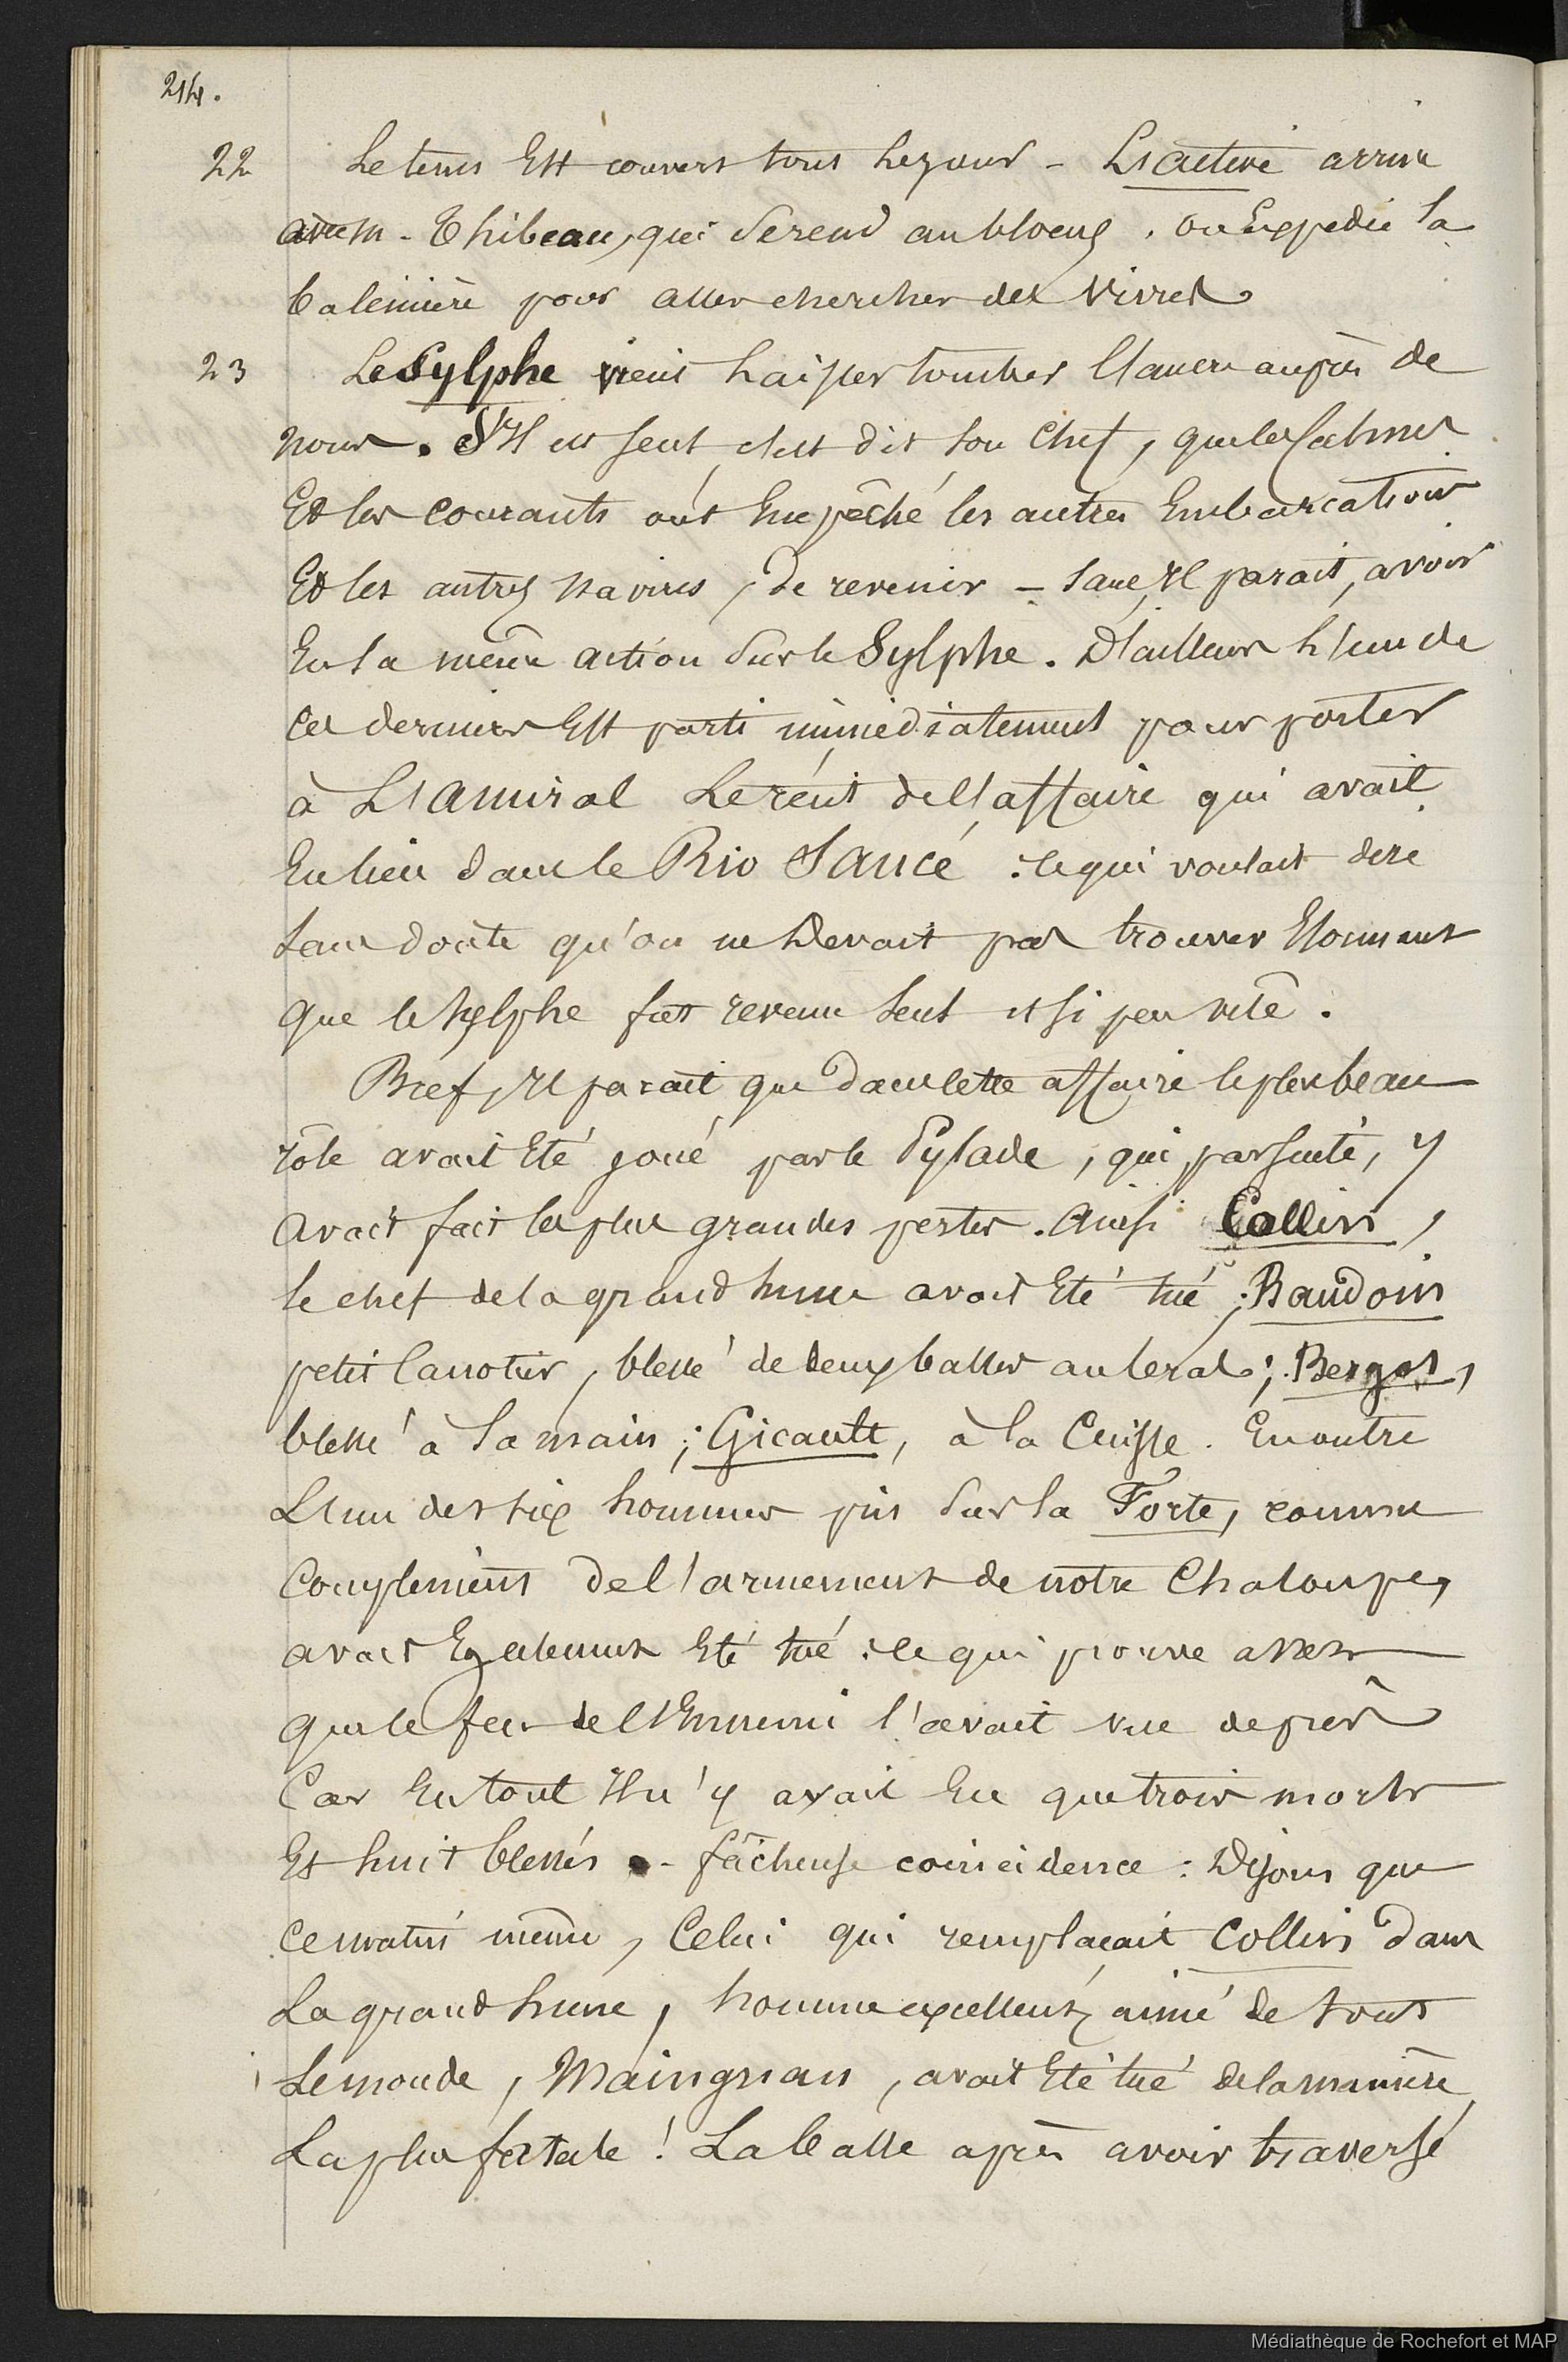 214.
22 Le tems Est couvert tout le jour - L'active arrive
avec m. Thibeau, qui se rend au blocus. on Expedie la
baleinière pour aller chercher des vivres
23 Le Sylphe vient laisser tomber l'ancre auprès de
nous. S'Il est seul, c'est dit son chef, que les calmes
Et les courants ont Empêché les autres Embarcations
Et les autres navires, de revenir - sans, Il parait, avoir
Eu la même action sur le Sylphe. D'ailleurs l'un de
ces derniers Est parti immediatement pour porter
à L'amiral Le récit de l'affaire qui avait
Eu lieu dans le Rio Saucé : ce qui voulait dire
sans doute qu'on ne Devait pas trouver Etonnant
que le Sylphe fut revenu seul et si peu vite.
Bref, Il parait que dans cette affaire le plus beau
rôle avait Eté joué par le Pylade, qui, par suite, y
avait fait les plus grandes pertes. Ainsi Collin,
le chef de la grand hune avait Eté tué; Baudoin
petit canotier, blessé de deux balles au bras; Bergot,
blessé à la main; Gicault, à la Cuisse. En outre
L'un des six hommes pris sur la Forte, comme
Complément de l'armement de notre Chaloupe,
avait Egalement Eté tué : ce qui prouve assez
que le feu de l'Ennemi l'avait vue de près
Car En tout Il n'y avait Eu que trois morts
Et huit blessés - fâcheuse coincidence : Disons que
ce matin même, Celui qui remplaçait Collin dans
La grand hune, homme excellent, aimé de tout
Le monde, Maingnan, avait Eté tué de la manière
La plus fatale ! La balle après avoir traversé
Médiathèque de Rochefort et MAP